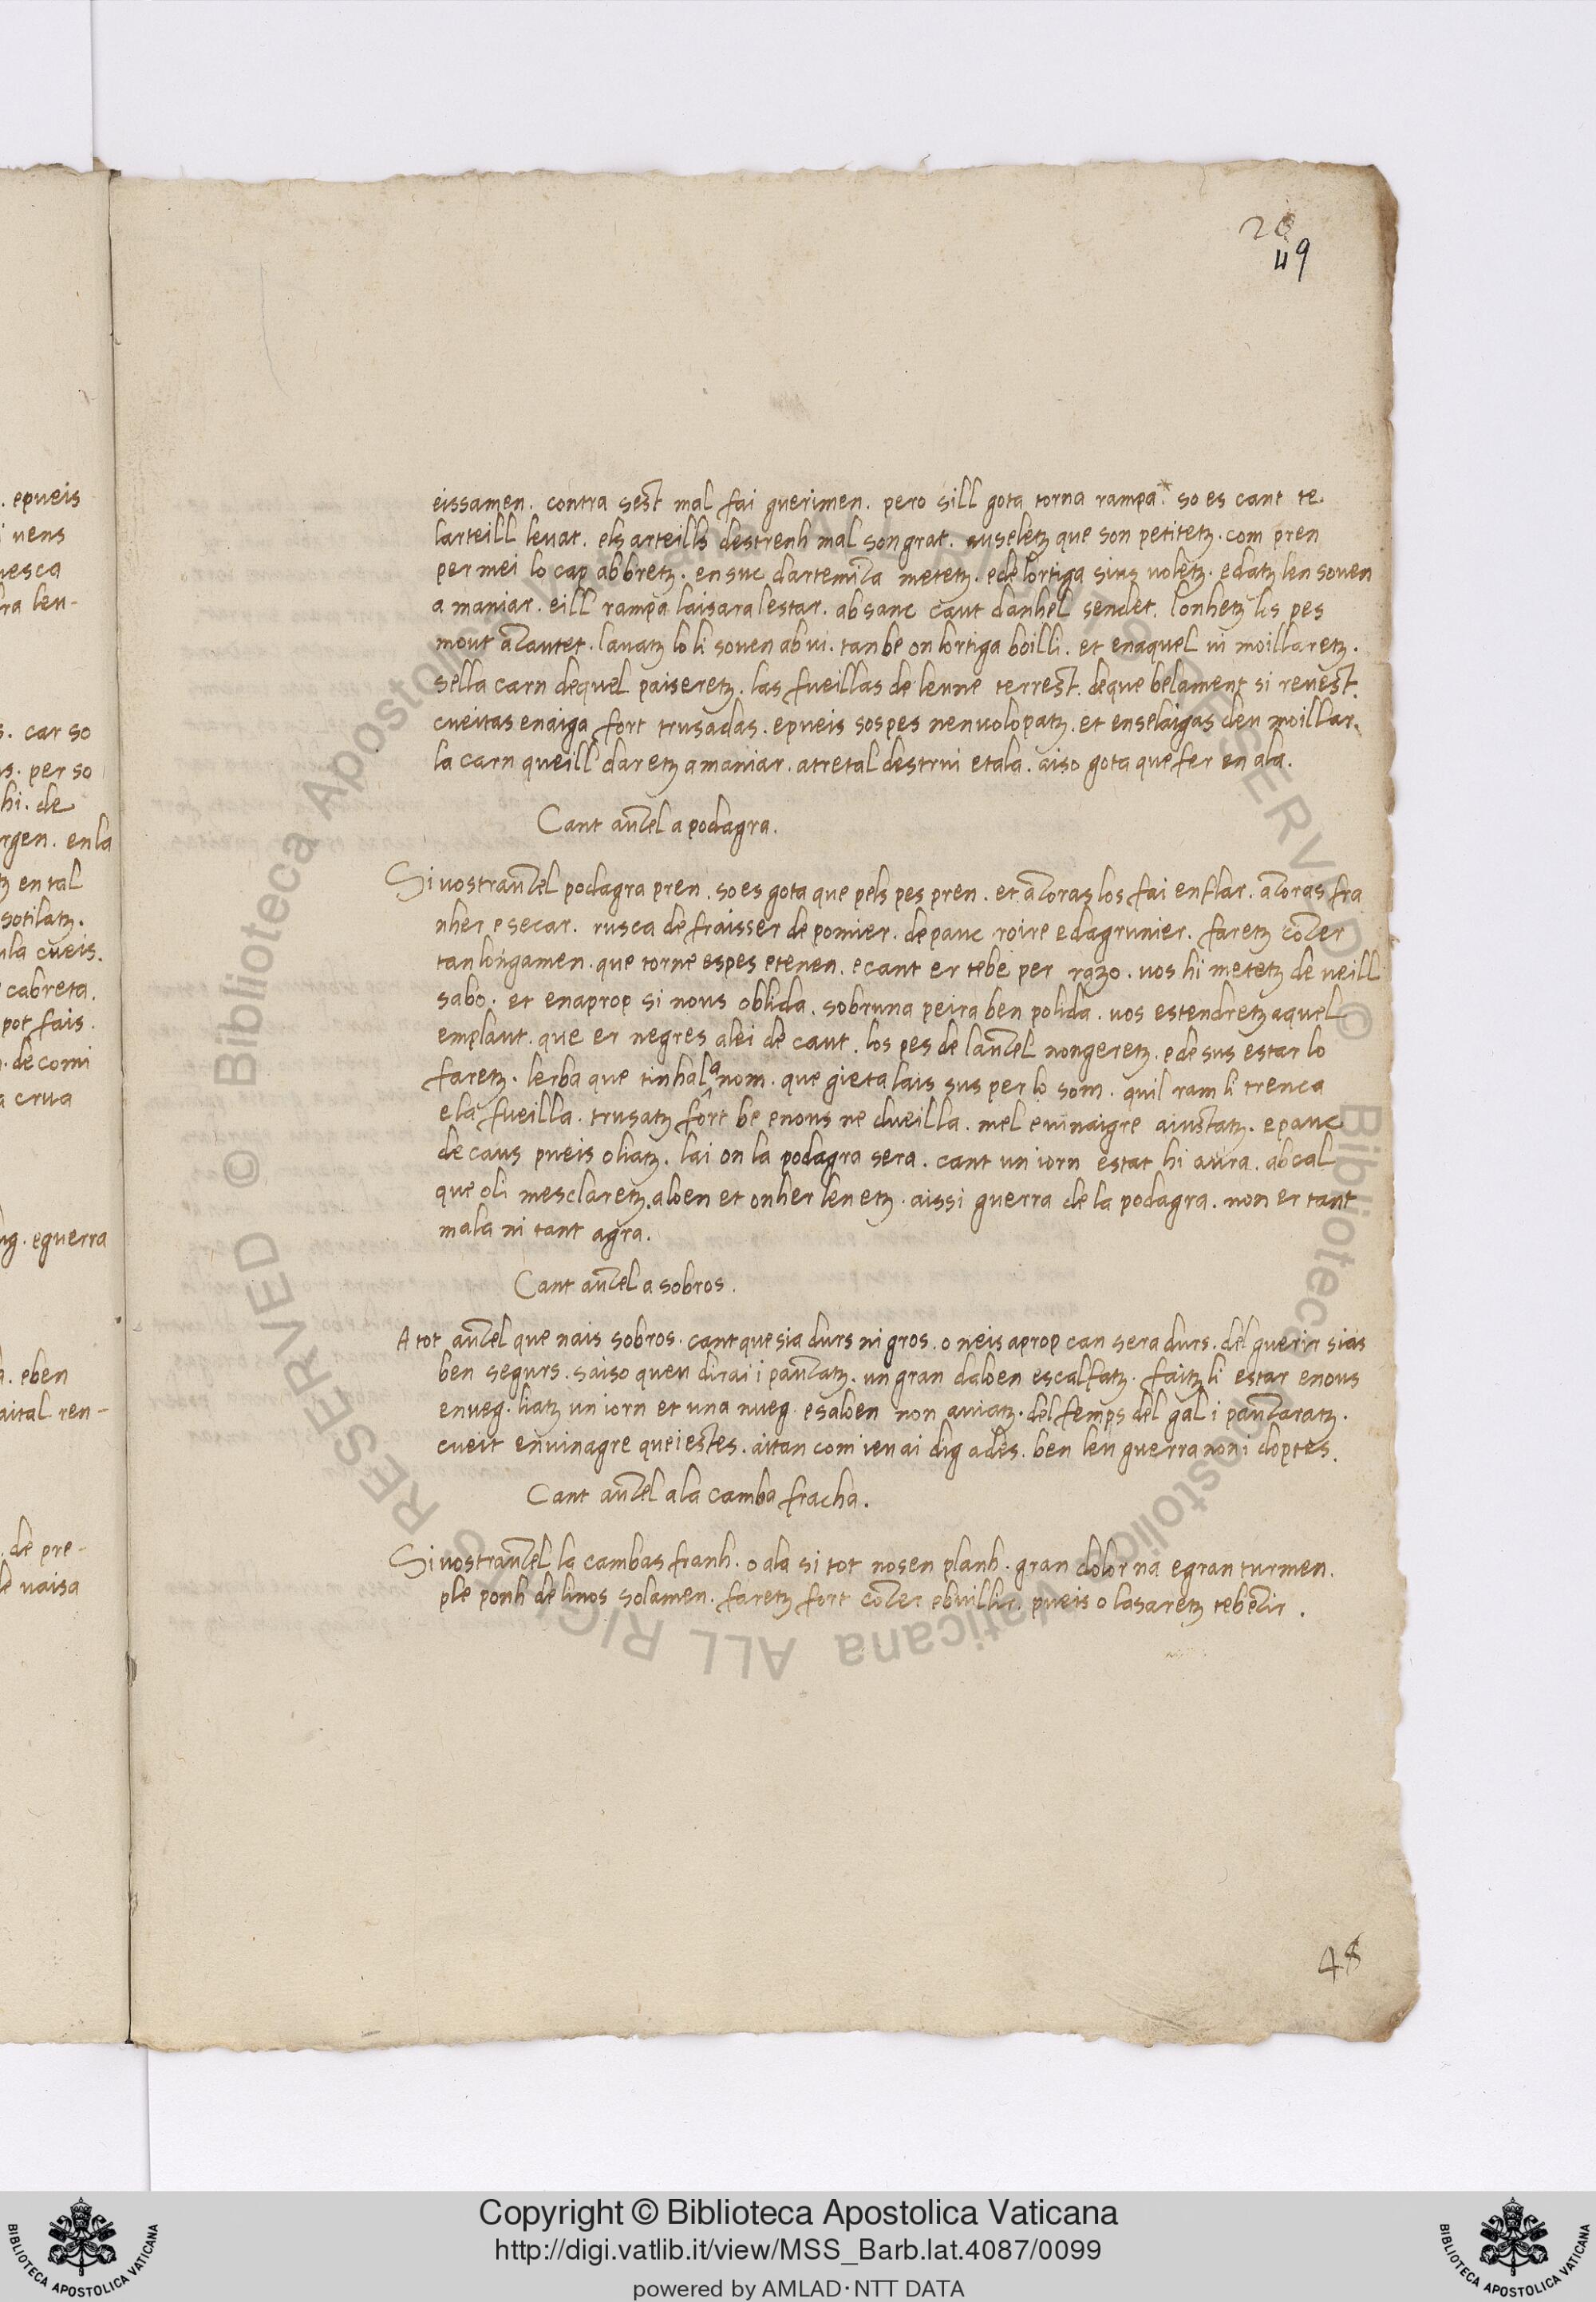 20
49
eissamen. contra sest mal fai guerimen. pero sill gota torna rampa* so es cant te
larteill levat. els arteills destrenh mal son grat. auseletz que son petitetz. com pren
per mei lo cap abbretz. en suc dartemiza metetz. e de lortiga sius voletz. e datz len soven
a maniar. eill rampa laisara lestar. ab sanc caut danhel sendet. lonhetz los pes
mout azautet. lavatz lo li soven ab vi. tanbe on lortiga boilli. et en aquel vi moillaretz.
sella carn de quel paiseretz. las fueillas de leune terrest. de que belament si revest.
cueitas en aiga fort trusadas. e pueis sos pes nenvolopatz. et en sel aigas deu moillar.
la carn queill daretz a maniar. atretal destrui et ala. aiso gota que fer en ala.
Cant auzel a podagra.
Si vostr auzel podagra pren. so es gota que pels pes pren. et azoras los fai enflar. azoras fra
nher e secar. rusca de fraisser de pomier. de pauc roire e dagrunier. faretz cozer
tan longamen. que torne espes e tenen. e cant er tebe per razo. vos hi metetz de veill
sabo. et enaprop si nous oblida. sobr una peira ben polida. vos estendretz aquel
emplaut. que er negres a lei de caut. los pes de lauzel nongeretz. e desus estar lo
faretz. lerba que tinhala nom. que gieta lais sus per lo som. quil ram li trenca
e la fueilla. trusatz fort be e nous ne dueilla. mel e vinaigre aiustatz. e pauc
de caus pueis o liatz. lai on la podagra sera. cant un iorn estat hi aura. ab cal
que oli mesclaretz. aloen et onher len etz. aissi guerra de la podagra. non er tant
mala ni tant agra.
Cant auzel a sobros.
A tot auzel que nais sobros. cant que sia durs ni gros. o neis aprop can sera durs. del guerir sias
ben segurs. saiso queu dirai i pauzatz. un gran daloen escalfatz. faitz li estar e nous
enueg. liatz un iorn et una nueg. e saloen non aviatz. del femps del gal i pauzaratz.
cueit en vinagre que i estes. aitan com ieu ai dig ades. ben leu guerra non i doptes.
Cant auzel a la camba fracha.
Si vostr auzel la cambas franh. o ala si tot nosen planh. gran dolor na e gran turmen.
ple ponh de linos solamen. faretz fort cozer e builhir. pueis o lasaretz tebezir.
48
. epueis
vens
mesca
ra leu-
s. car so
s. per so
hi. de
rgen. en la
tz en tal
sotilatz.
la cueis.
cabreta.
pot fais.
. de comi
a crua
ug. e guerra
. e ben
aital ren-
. de pre-
le vaisa
Copyright © Biblioteca Apostolica Vaticana
http://digi.vatlib.it/view/MSS_Barb.lat.4087/0099
powered by AMLAD·NTT DATA
BIBLIOTECA APOSTOLICA VATICANA
BIBLIOTECA APOSTOLICA VATICANA